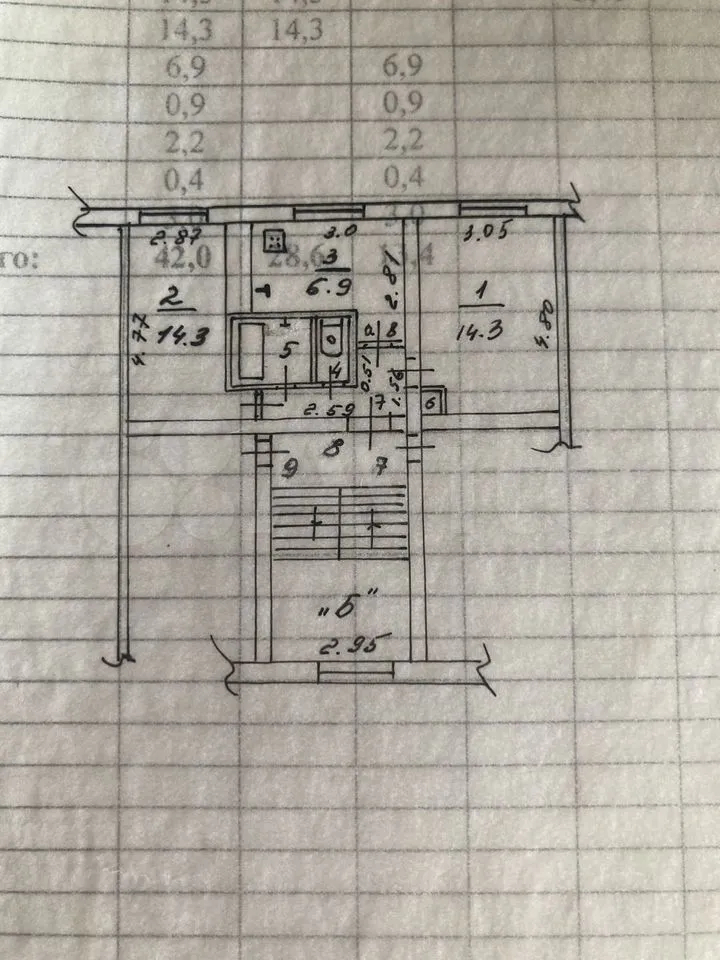 14,3 14,3
6,9 6,9
0,9 0,9
2,2 2,2
0,4 0,4
го: 42,0 28,6
2.87 3.0 3.05
3
6.9
2.81
2
14.3
4.77
1
14.3
4.80
5
4
0.51
1.56
7
6
2.59
8
9 7
„Б"
2.95